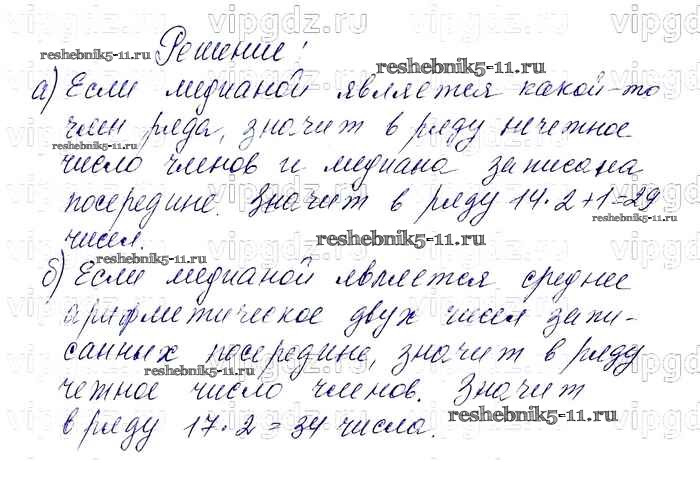 vipgdz.ru vipgdz.ru vipgdz.ru
Решение:
reshebnik5-11.ru
reshebnik5-11.ru
а) Если медианой является какой-то
член ряда, значит в ряду нечетное
reshebnik5-11.ru
число членов и медиана записана
посередине. Значит в ряду 14·2+1=29
reshebnik5-11.ru
чисел.
reshebnik5-11.ru
reshebnik5-11.ru
б) Если медианой является среднее
арифметическое двух чисел запи-
санных посередине, значит в ряду
reshebnik5-11.ru
четное число членов. Значит
reshebnik5-11.ru
в ряду 17·2=34 числа.